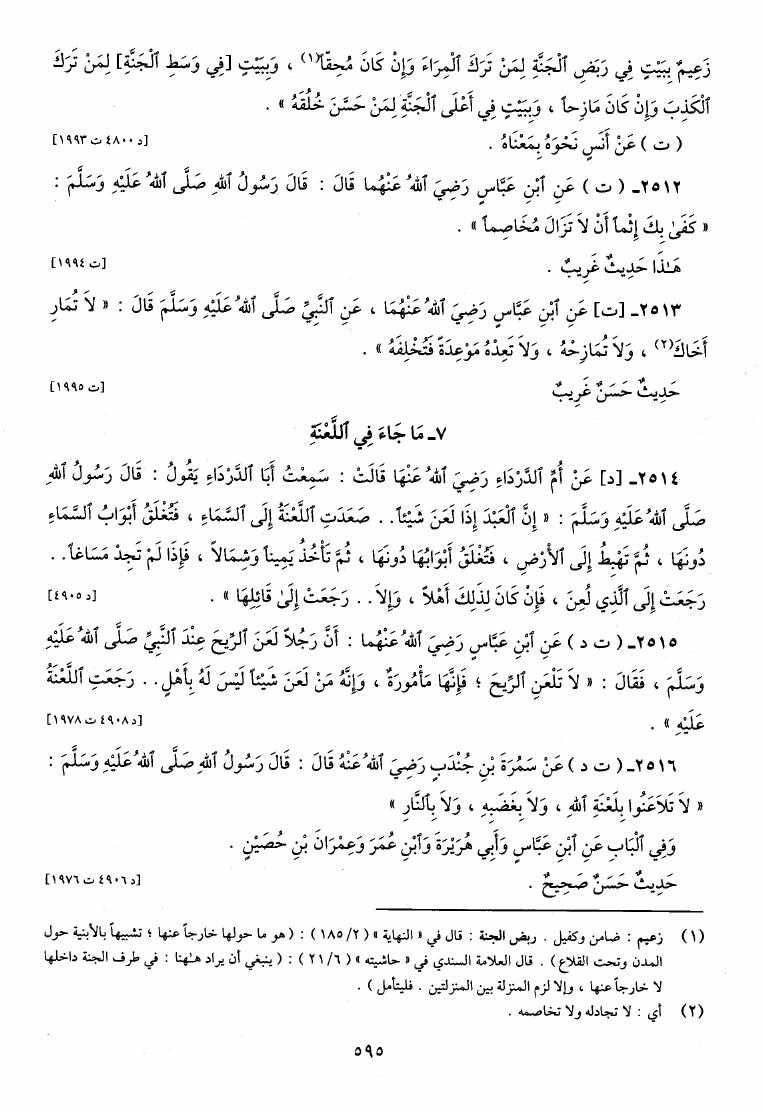 زَعِيمٌ بِبَيْتٍ فِي رَبَضِ ٱلْجَنَّةِ لِمَنْ تَرَكَ ٱلْمِرَاءَ وَإِنْ كَانَ مُحِقّاً(١) ، وَبِبَيْتٍ [فِي وَسَطِ ٱلْجَنَّةِ] لِمَنْ تَرَكَ
ٱلْكَذِبَ وَإِنْ كَانَ مَازِحاً ، وَبِبَيْتٍ فِي أَعْلَى ٱلْجَنَّةِ لِمَنْ حَسَّنَ خُلُقَهُ » .
( ت ) عَنْ أَنَسٍ نَحْوَهُ بِمَعْنَاهُ . [د ٤٨٠٠ ت ١٩٩٣]
٢٥١٢ـ ( ت ) عَنِ ٱبْنِ عَبَّاسٍ رَضِيَ ٱللهُ عَنْهُما قَالَ : قَالَ رَسُولُ ٱللهِ صَلَّى ٱللهُ عَلَيْهِ وَسَلَّمَ :
« كَفَىٰ بِكَ إِثْماً أَنْ لاَ تَزَالَ مُخَاصِماً » .
هَـٰذَا حَدِيثٌ غَرِيبٌ . [ت ١٩٩٤]
٢٥١٣ـ [ت] عَنِ ٱبْنِ عَبَّاسٍ رَضِيَ ٱللهُ عَنْهُمَا ، عَنِ ٱلنَّبِيِّ صَلَّى ٱللهُ عَلَيْهِ وَسَلَّمَ قَالَ : « لاَ تُمَارِ
أَخَاكَ(٢) ، وَلاَ تُمَازِحْهُ ، وَلاَ تَعِدْهُ مَوْعِدَةً فَتُخْلِفَهُ » .
حَدِيثٌ حَسَنٌ غَرِيبٌ [ت ١٩٩٥]
٧ـ مَا جَاءَ فِي ٱللَّعْنَةِ
٢٥١٤ـ [د] عَنْ أُمِّ ٱلدَّرْدَاءِ رَضِيَ ٱللهُ عَنْهَا قَالَتْ : سَمِعْتُ أَبَا ٱلدَّرْدَاءِ يَقُولُ : قَالَ رَسُولُ ٱللهِ
صَلَّى ٱللهُ عَلَيْهِ وَسَلَّمَ : « إِنَّ ٱلْعَبْدَ إِذَا لَعَنَ شَيْئاً.. صَعَدَتِ ٱللَّعْنَةُ إِلَى ٱلسَّمَاءِ ، فَتُغْلَقُ أَبْوَابُ ٱلسَّمَاءِ
دُونَهَا ، ثُمَّ تَهْبِطُ إِلَى ٱلأَرْضِ ، فَتُغْلَقُ أَبْوَابُهَا دُونَهَا ، ثُمَّ تَأْخُذُ يَمِيناً وَشِمَالاً ، فَإِذَا لَمْ تَجِدْ مَسَاغاً..
رَجَعَتْ إِلَى ٱلَّذِي لُعِنَ ، فَإِنْ كَانَ لِذَلِكَ أَهْلاً ، وَإِلاَّ.. رَجَعَتْ إِلَىٰ قَائِلِهَا » . [د ٤٩٠٥]
٢٥١٥ـ ( ت د ) عَنِ ٱبْنِ عَبَّاسٍ رَضِيَ ٱللهُ عَنْهُمَا : أَنَّ رَجُلاً لَعَنَ ٱلرِّيحَ عِنْدَ ٱلنَّبِيِّ صَلَّى ٱللهُ عَلَيْهِ
وَسَلَّمَ ، فَقَالَ : « لاَ تَلْعَنِ ٱلرِّيحَ ؛ فَإِنَّهَا مَأْمُورَةٌ ، وَإِنَّهُ مَنْ لَعَنَ شَيْئاً لَيْسَ لَهُ بِأَهْلٍ.. رَجَعَتِ ٱللَّعْنَةُ
عَلَيْهِ » . [د ٤٩٠٨ ت ١٩٧٨]
٢٥١٦ـ ( ت د ) عَنْ سَمُرَةَ بْنِ جُنْدَبٍ رَضِيَ ٱللهُ عَنْهُ قَالَ : قَالَ رَسُولُ ٱللهِ صَلَّى ٱللهُ عَلَيْهِ وَسَلَّمَ :
« لاَ تَلاَعَنُوا بِلَعْنَةِ ٱللهِ ، وَلاَ بِغَضَبِهِ ، وَلاَ بِٱلنَّارِ »
وَفِي ٱلْبَابِ عَنِ ٱبْنِ عَبَّاسٍ وَأَبِي هُرَيْرَةَ وَٱبْنِ عُمَرَ وَعِمْرَانَ بْنِ حُصَيْنٍ .
حَدِيثٌ حَسَنٌ صَحِيحٌ . [د ٤٩٠٦ ت ١٩٧٦]
(١) زعيم : ضامن وكفيل . ربض الجنة : قال في « النهاية » ( ٢/ ١٨٥ ) : ( هو ما حولها خارجاً عنها ؛ تشبيهاً بالأبنية حول
المدن وتحت القلاع ) . قال العلامة السندي في « حاشيته » ( ٦/ ٢١ ) : ( ينبغي أن يراد هـٰهنا : في طرف الجنة داخلها
لا خارجاً عنها ، وإلا لزم المنزلة بين المنزلتين . فليتأمل ) .
(٢) أي : لا تجادله ولا تخاصمه .
٥٩٥